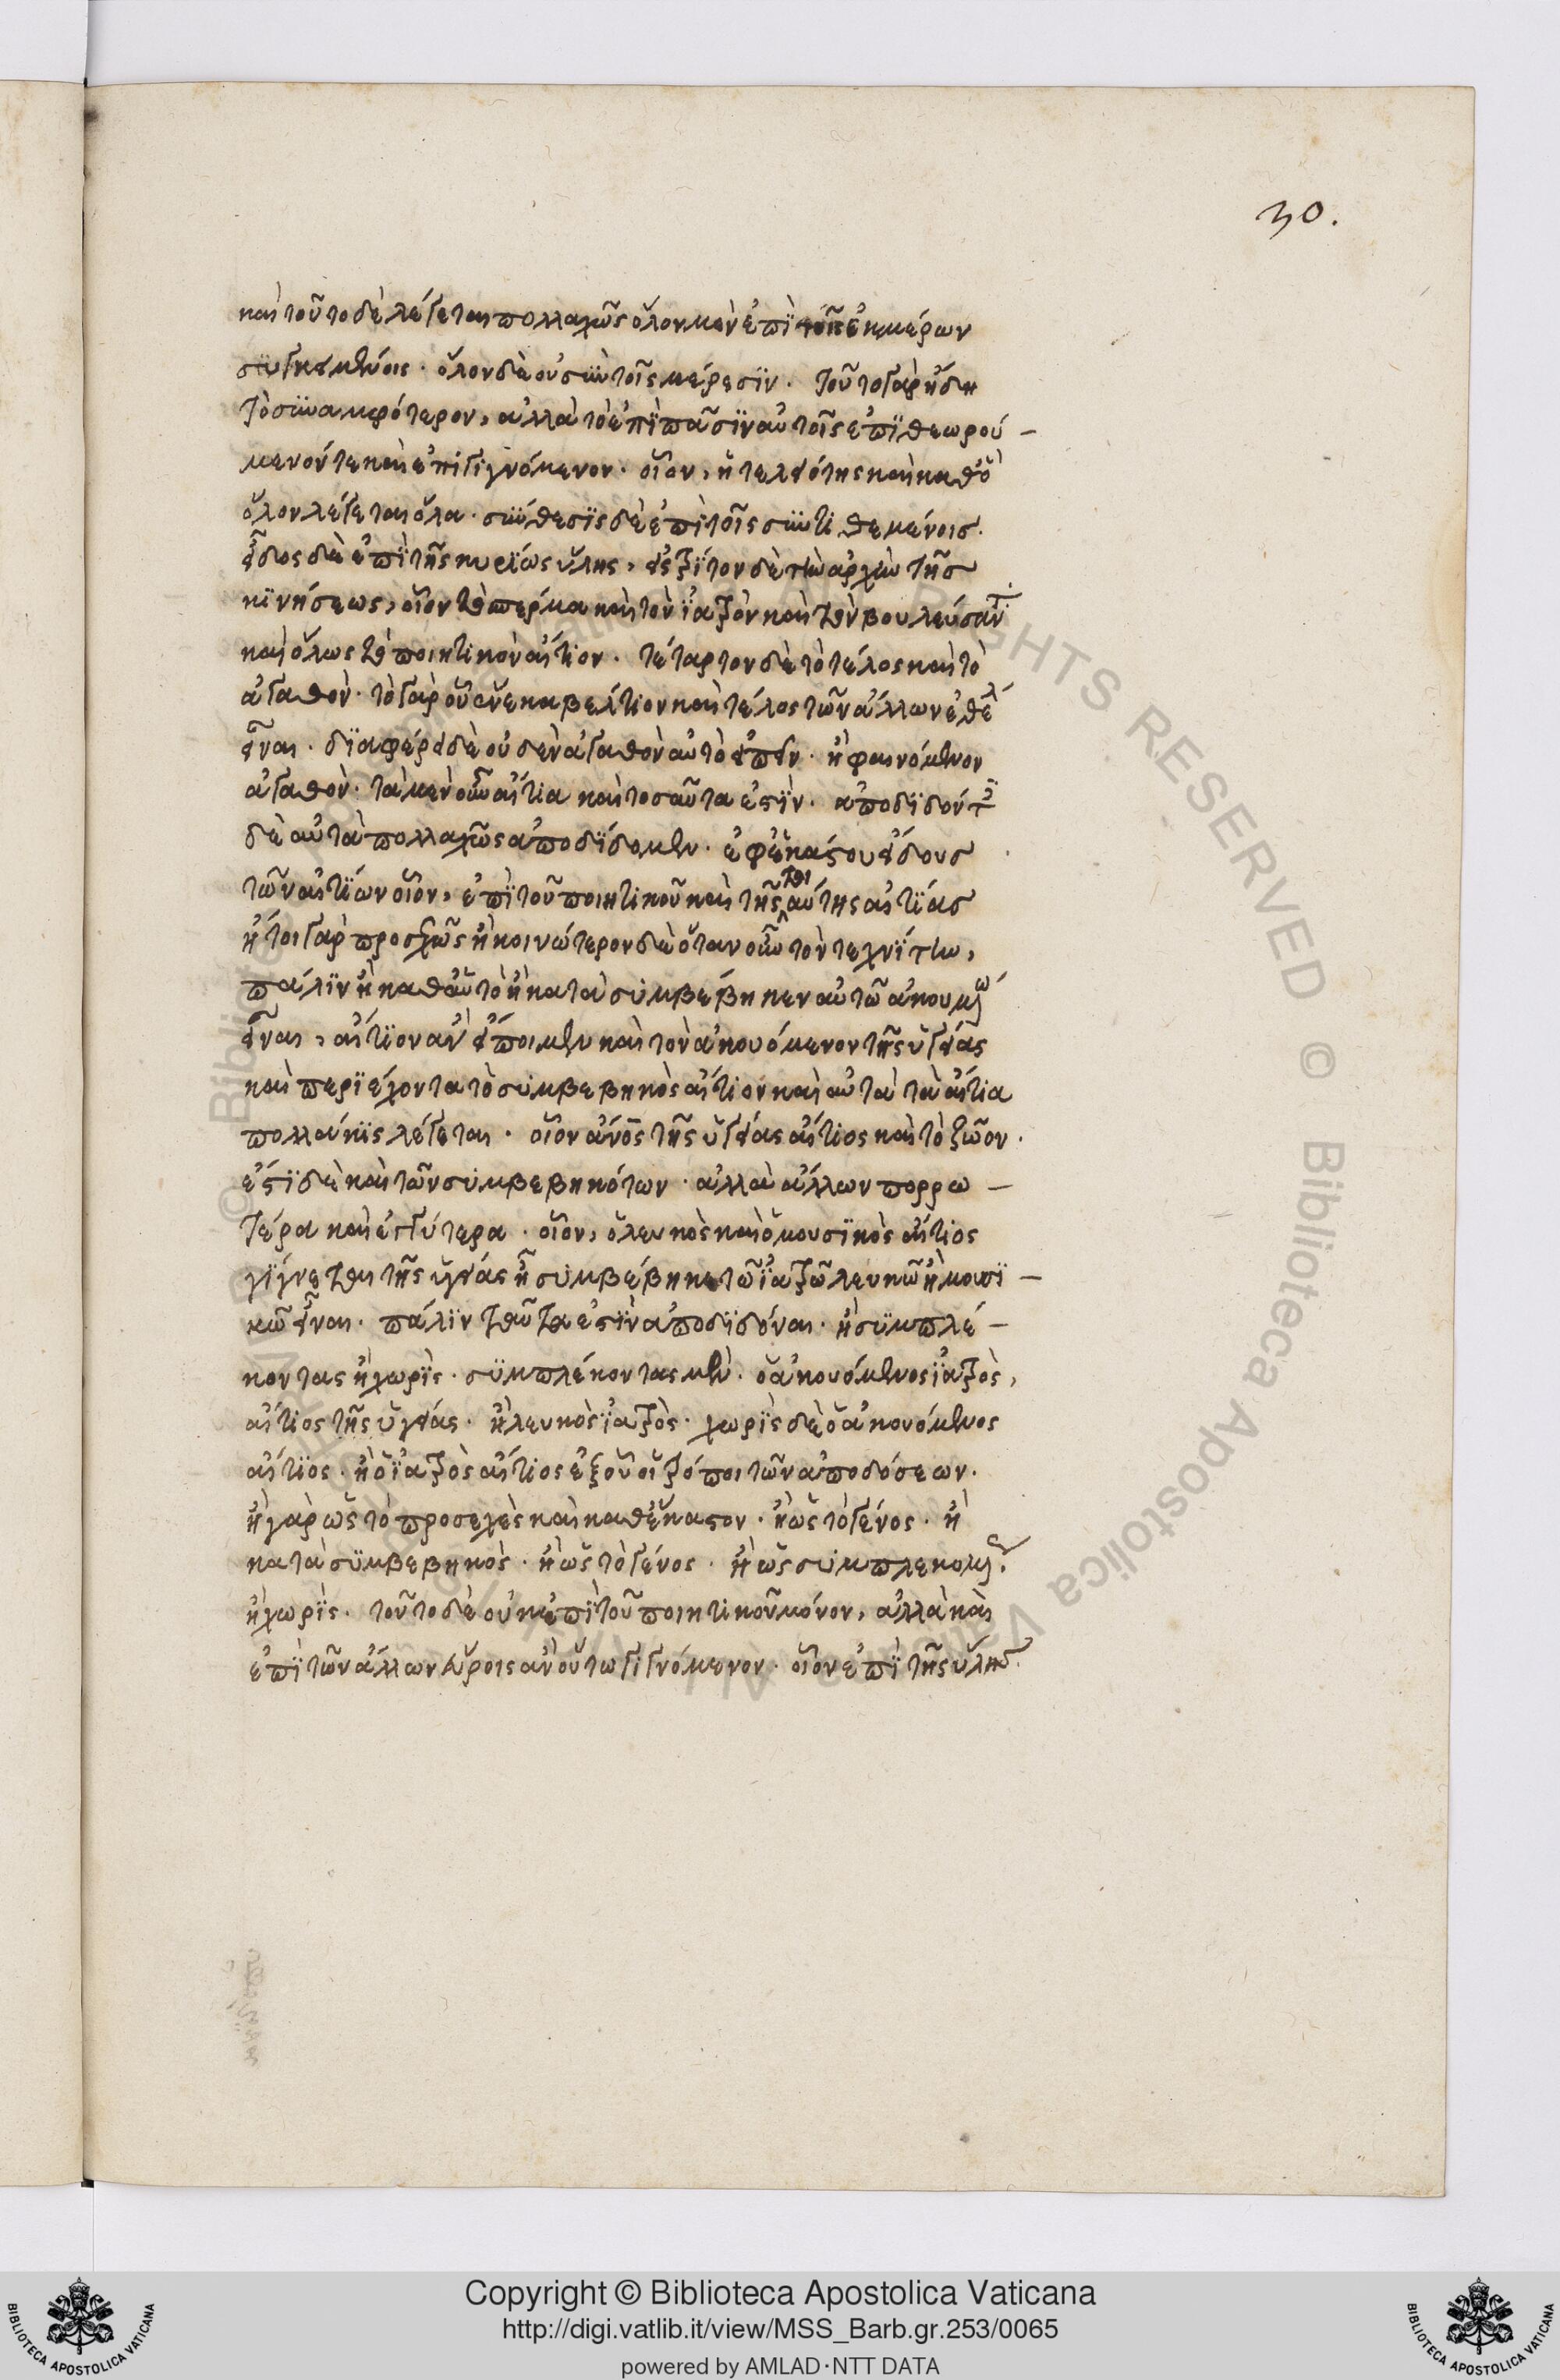 30.
καὶ τοῦτο δὲ λέγεται πολλαχῶς ὅλον μὲν ἐπὶ τοῖς ἐκ μερῶν
συγκειμένοις · ὅλον δὲ οὐ σὺν τοῖς μέρεσϊν · τοῦτο γὰρ ἤδη
τὸ συναμφότερον, ἀλλὰ τὸ ἐπὶ πᾶσϊν αὐτοῖς ἐπϊθεωρού –
μενόν τε καὶ ἐπιγιγνόμενον · οἷον, ἡ τελειότης καὶ καθὸ
ὅλον λέγεται ὅλα · σύνθεσϊς δὲ ἐπὶ τοῖς συντιθεμένοισ ·
εἶδος δὲ ἐπὶ τῆς κυρϊως ὕλης, εἶς τρϊτον δὲ τὴν ἀρχὴν τῆσ
κϊνήσεως, οἷον τὸ σπέρμα καὶ τὸν ϊατρὸν καὶ τὸν βουλεύσαντ
καὶ ὅλως τὸ ποιητικὸν αἴτιον · τέταρτον δὲ τὸ τέλος καὶ τὸ
ἀγαθὸν · τὸ γὰρ οὗ ἕνεκα βέλτιον καὶ τέλος τῶν ἄλλων ἐθέλ
εἶναι · δϊαφέρει δὲ οὐδὲν ἀγαθὸν αὐτὸ εἰπεῖν · ἢ φαινόμενον
ἀγαθὸν · τὰ μὲν οὖν αἴτια καὶ τοσαῦτα ἐστϊν · ἀποδϊδόντ
δὲ αὐτὰ πολλαχῶς ἀποδϊδομεν · ἐφ ἑκάστου εἴδουσ
τῶν αἰτϊῶν οἷον, ἐπϊ τοῦ ποιητικοῦ καὶ τῆς τοιαύτης αἰτϊάσ
ἤτοι γὰρ προσεχῶς ἢ κοινώτερον δὲ ὅταν οὖν τὸν τεχνϊτην,
πάλϊν ἢ καθ αὑτὸ ἢ κατὰ συμβέβηκεν αὐτῶ ἀκουμέν
εἶναι, αἴτϊον ἂν εἴποιμεν καὶ τὸν ἀκουόμενον τῆς ὑγείας
καὶ περϊέχοντα τὸ συμβεβηκὸς αἴτιον καὶ αὐτὰ τὰ αἴτια
πολλάκϊς λέγεται · οἷον ἄνος τῆς ὑγείας αἴτιος καὶ τὸ ζῶον ·
ἐστϊ δὲ καὶ τῶν συμβεβηκότων · ἀλλὰ ἄλλων πορρω –
τέρα καὶ ἐγγύτερα · οἷον, ὁ λευκὸς καὶ ὁ μουσϊκὸς αἴτιος
γϊγνεται τῆς ὑγείας ἧ συμβέβηκε τῶ ϊατρῶ λευκῶ ἢ μουσϊ –
κῶ εἶναι · πάλϊν ταῦτα ἐστϊν ἀποδϊδόναι · ἢ συμπλέ –
κοντας ἢ χωρϊς · συμπλέκοντας μὲν · ὁ ἀκουόμενος ϊατρὸς,
αἴτιος τῆς ὑγείας · ἢ λευκὸς ϊατρὸς · χωρϊς δὲ ὁ ἀκουόμενος
αἴτϊος · ἢ ὁ ϊατρὸς αἴτιος ἐξ οὗ οἱ τρόποι τῶν ἀποδόσεων ·
ἢ γὰρ ὡς τὸ προσεχὲς καὶ καθ ἕκαστον · ἢ ὡς τὸ γένος · ἢ
κατὰ συμβεβηκὸς · ἢ ὡς τὸ γένος · ἢ ὡς συμπλεκομ
ἢ χωρϊς · τοῦτο δὲ οὐκ ἐπϊ τοῦ ποιητικοῦ μόνον, ἀλλὰ καὶ
ἐπϊ τῶν ἄλλων εὕροις ἂν οὕτω γιγνόμενον · οἷον ἐπϊ τῆς ὕλησ
© Biblioteca Apostolica Vaticana
ALL RIGHTS RESERVED © Biblioteca Apostolica Vaticana
Copyright © Biblioteca Apostolica Vaticana
http://digi.vatlib.it/view/MSS_Barb.gr.253/0065
powered by AMLAD·NTT DATA
BIBLIOTECA APOSTOLICA VATICANA
BIBLIOTECA APOSTOLICA VATICANA